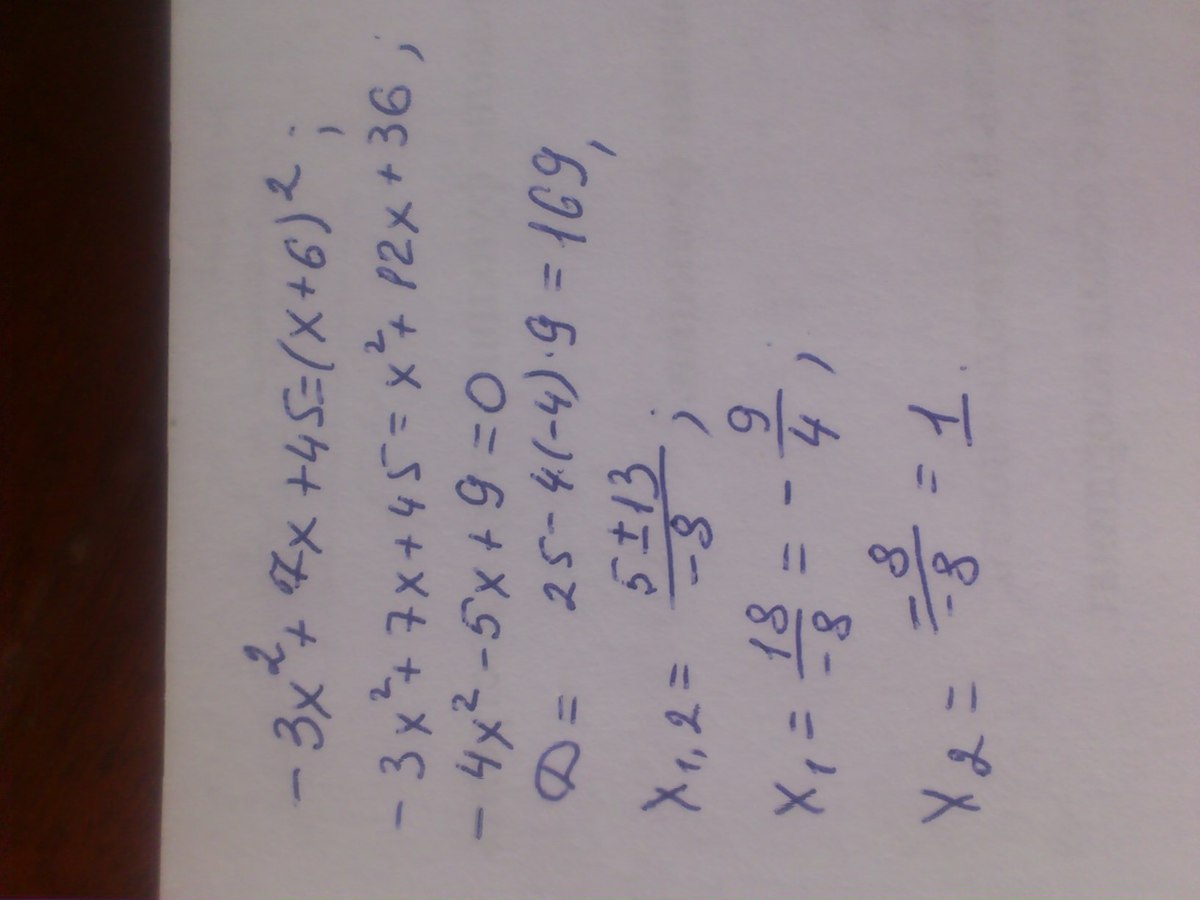 -3x²+7x+45=(x+6)²;
-3x²+7x+45=x²+12x+36;
-4x²-5x+9=0
D= 25-4(-4)·9=169,
x1,2= 5±13/-8;
x1= 18/-8 = -9/4;
x2= -8/-8 = 1.